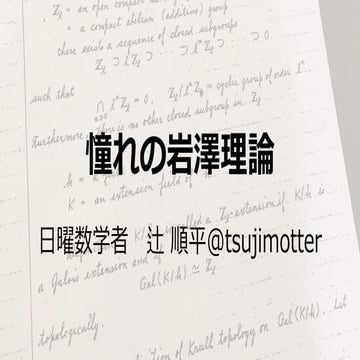 ℤ_ℓ = an open compact
= a compact abelian (additive) group
there exists a sequence of closed subgroups
ℤ_ℓ ⊃ ℓℤ_ℓ ⊃ ⊃ ℓⁿℤ_ℓ ⊃ ⊃ 0
such that
∩ ℓⁿℤ_ℓ = 0, ℤ_ℓ/ℓⁿℤ_ℓ = cyclic group of order ℓⁿ.
Furthermore, there is no other closed subgroup in ℤ_ℓ
憧れの岩澤理論
K = an extension field of
日曜数学者 辻 順平@tsujimotter
called a ℤ_ℓ-extension if K/k is
a Galois extension and if
Gal(K/k) ≅ ℤ_ℓ
topologically.
of Krull topology on Gal(K/k). Let